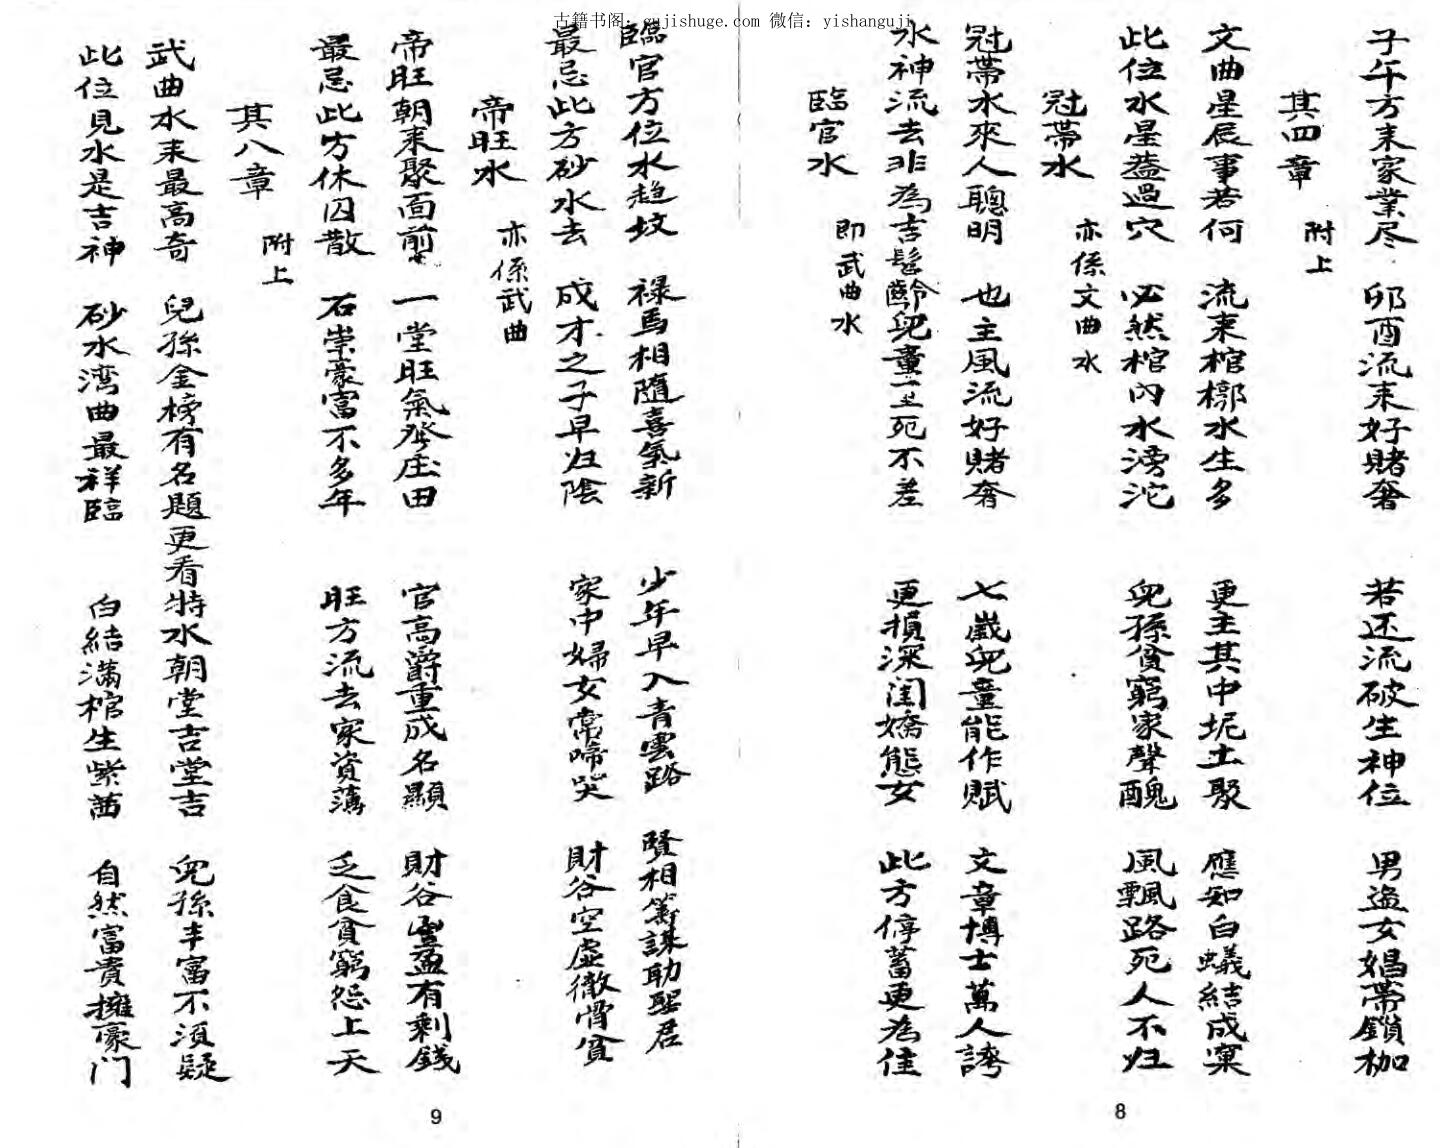 古籍书阁：gujishuge.com 微信：yishanguji
子午方来家業尽 卯酉流来好賭奢 若还流破生神位 男盗女娼帶鎖枷
其四章 附上
文曲星辰事若何 流来棺槨水生多 更主其中坭土聚 應知白蟻結成窠
此位水星蓋過穴 必然棺內水滂沱 兒孫貧窮家聲醜 風飄路死人不归
冠帶水 亦係文曲水
冠帶水來人聰明 也主風流好賭奢 七歲兒童能作賦 文章博士萬人誇
水神流去非為吉 髫齡兒童主死不差 更損深闺嬌態女 此方停蓄更為佳
臨官水 即武曲水
臨官方位水趋坟 禄馬相随喜氣新 少年早入青雲路 賢相籌謀助聖君
最忌此方砂水去 成才之子早归陰 家中婦女常啼哭 財谷空虛徹骨貧
帝旺水 亦係武曲
帝旺朝来聚面前 一堂旺氣發庄田 官高爵重成名顯 財谷豐盈有剩錢
最忌此方休囚散 石崇豪富不多年 旺方流去家資薄 乏食貧窮怨上天
其八章 附上
武曲水来最高奇 兒孫金榜有名題 更看特水朝堂吉堂吉 兒孫丰富不須疑
此位見水是吉神 砂水湾曲最祥臨 白結满棺生紫茜 自然富貴擁豪门
8
9